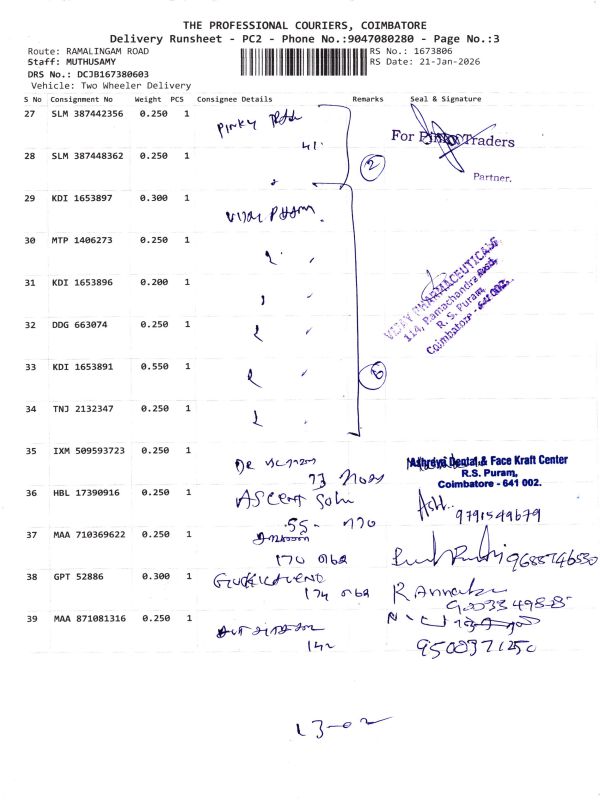 THE PROFESSIONAL COURIERS, COIMBATORE
Delivery Runsheet - PC2 - Phone No.:9047080280 - Page No.:3
Route: RAMALINGAM ROAD
RS No.: 1673806
Staff: MUTHUSAMY
RS Date: 21-Jan-2026
DRS No.: DCJB167380603
Vehicle: Two Wheeler Delivery
S No Consignment No Weight PCS Consignee Details Remarks Seal & Signature
27 SLM 387442356 0.250 1 Pinky
41
For Pinkoo Traders
28 SLM 387448362 0.250 1
2
Partner.
29 KDI 1653897 0.300 1 Vijay
30 MTP 1406273 0.250 1
31 KDI 1653896 0.200 1
VIJAY PHARMACEUTICALS
114, Ramachandra Road,
R. S. Puram,
Coimbatore - 641 002.
32 DDG 663074 0.250 1
33 KDI 1653891 0.550 1
6
34 TNJ 2132347 0.250 1
35 IXM 509593723 0.250 1 DR
73
Dental & Face Kraft Center
R.S. Puram,
Coimbatore - 641 002.
36 HBL 17390916 0.250 1 ASCENT Solu
55
9791549679
37 MAA 710369622 0.250 1
170
9688746550
38 GPT 52886 0.300 1
174
39 MAA 871081316 0.250 1
142
9500371250
13-02